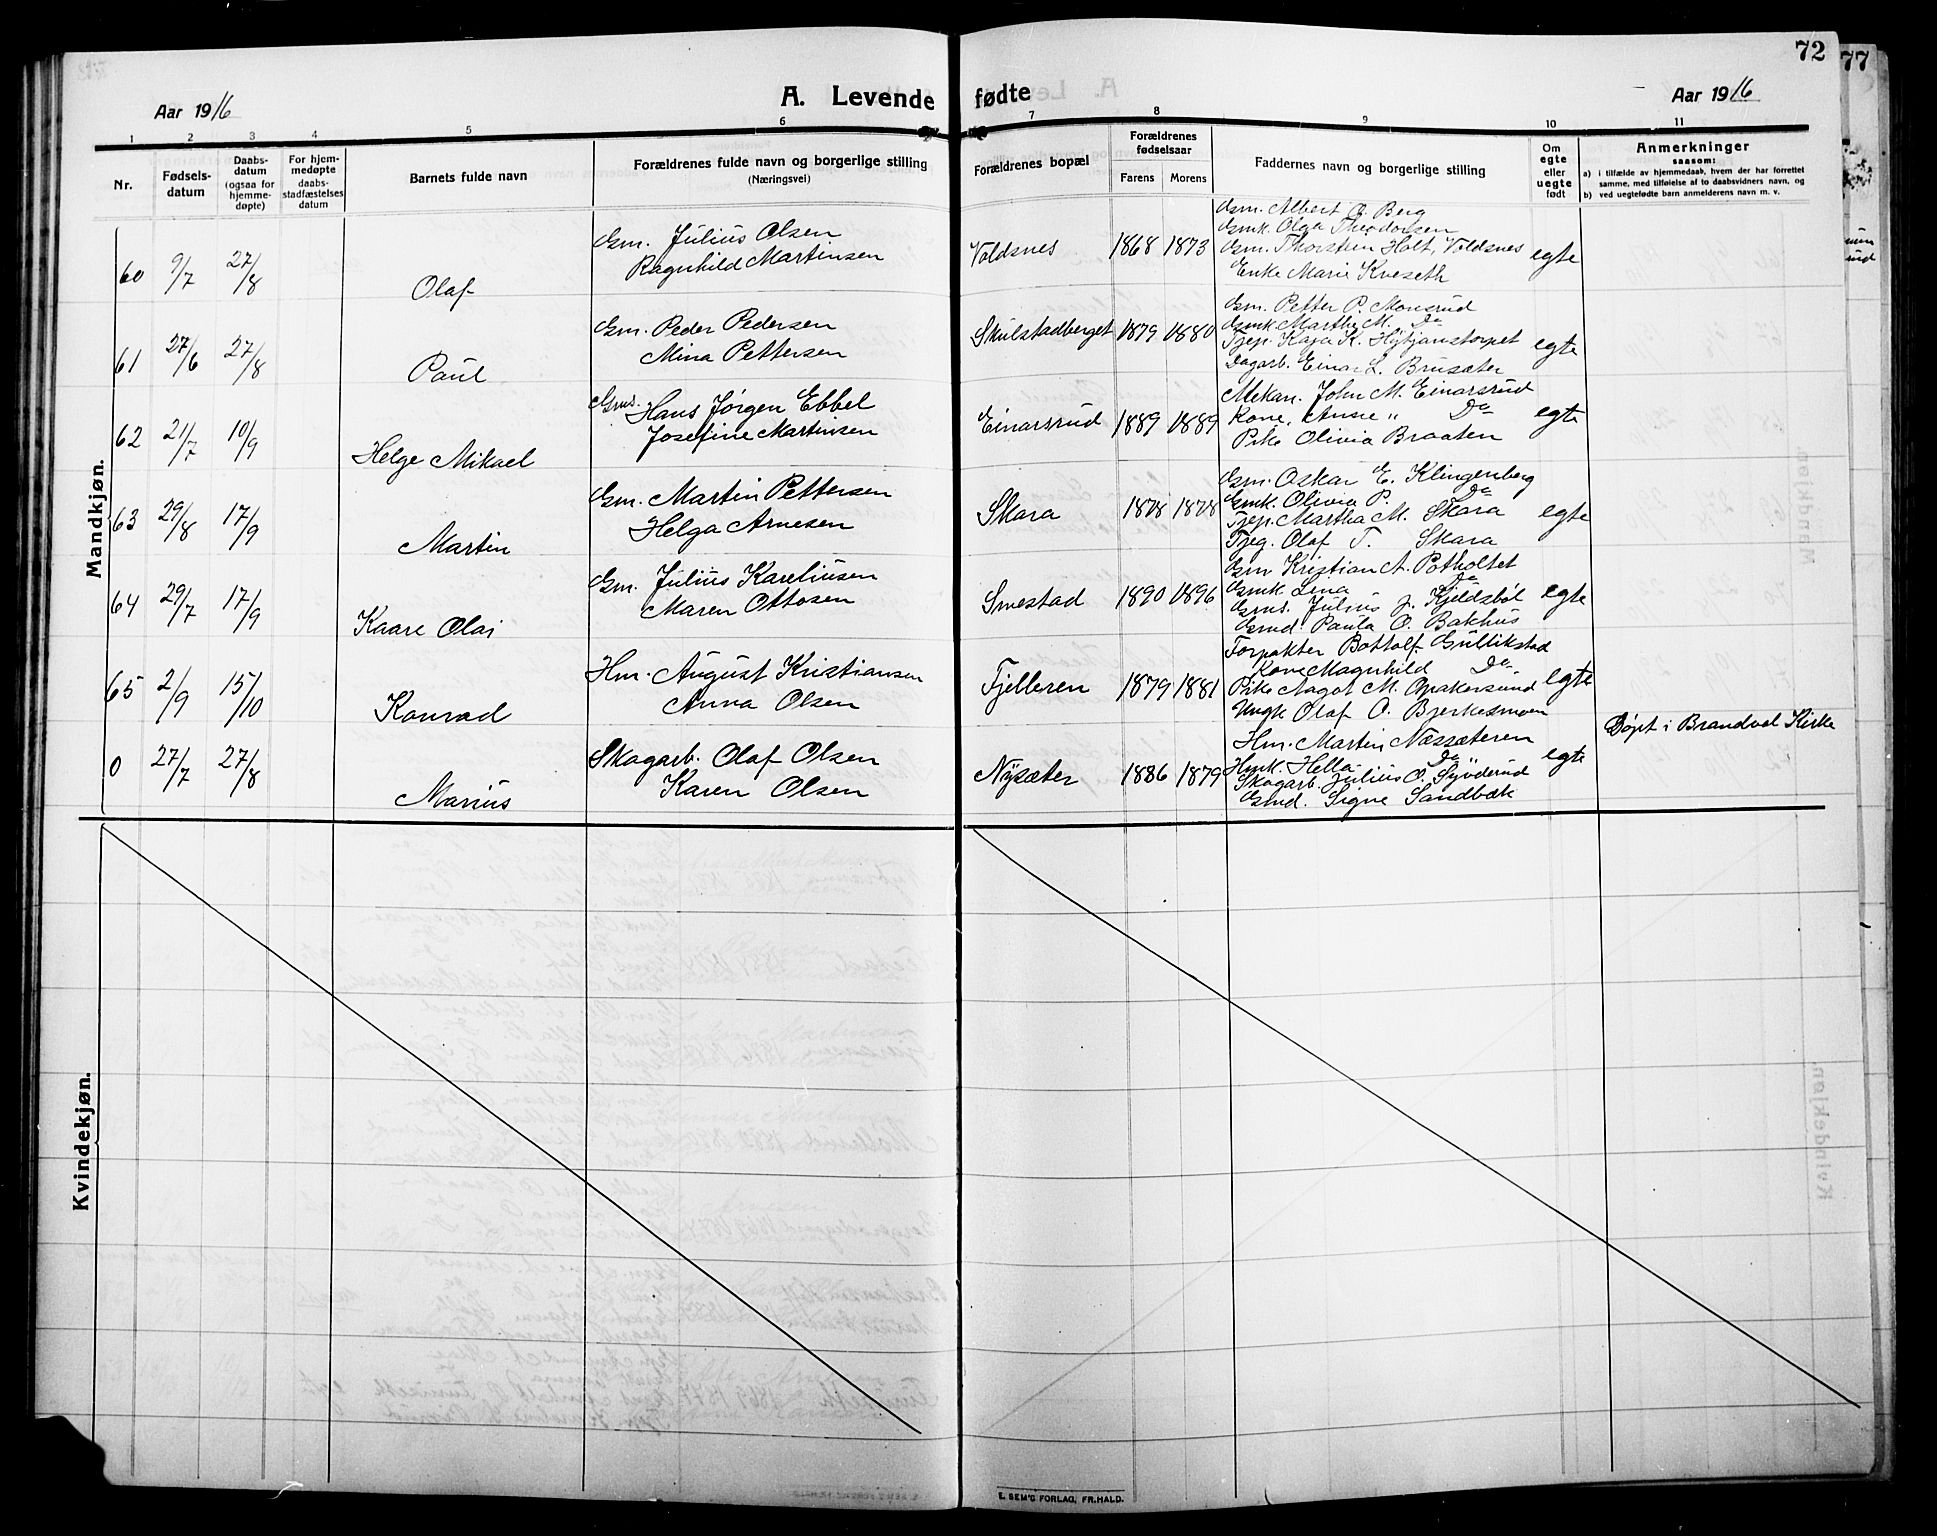 72
77
A. Levende fødte
Aar 1916
Aar 1916
1 2 3 4 5 6 7 8 9 10 11
Nr.
Fødsels-
datum
Daabs-
datum
(ogsaa for
hjemme-
døpte)
For hjem-
medøpte
daabs-
stadfæstelses
datum
Barnets fulde navn
Forældrenes fulde navn og borgerlige stilling
(Næringsvei)
Forældrenes bopæl
Forældrenes
fødselsaar
Farens Morens
Faddernes navn og borgerlige stilling
Om
egte
eller
uegte
født
Anmerkninger
saasom:
a) i tilfælde av hjemmedaab, hvem der har forrettet
samme, med tilføielse af to daabsvidners navn, og
b) ved uegtefødte barn anmelderens navn m. v.
Mandkjøn.
60 9/7 27/8 Olaf
Gm. Julius Olsen
Ragnhild Martinsen
Voldsnes 1868 1873
Gm. Albert O. Berg
Gmk. Olga Theodorsen
Gm. Thorstein Holt, Voldsnes
Enke Marie Kveseth
egte
61 27/6 27/8 Paul
Gm. Peder Pedersen
Mina Pettersen
Skulstadberget 1879 1880
Gm. Petter P. Monsrud
Gmk. Marthe M. Do
Tjep. Kaja K. Hytjanstorpet
Dagarb. Einar L. Brusæter
egte
62 21/7 10/9 Helge Mikael
Gms. Hans Jørgen Ebbel
Josefine Martinsen
Einarsrud 1889 1889
Mekan. John M. Einarsrud
Kone, Anne " Do
Pike Olivia Braaten
egte
63 29/8 17/9 Martin
Gm. Martin Pettersen
Helga Arnesen
Skara 1878 1878
Gm. Oskar E. Klingenberg
Gmk. Olivia P. Do
Tjep. Martha M. Skara
Tjeg. Olaf T. Skara
egte
64 29/7 17/9 Kaare Olai
Gm. Julius Kareliusen
Maren Ottosen
Smestad 1890 1896
Gm Kristian A. Potholtet
Gmk. Lina Do
Gms. Julius J. Kjeldsbøl
Gmd. Paula O. Bakhus
egte
65 2/9 15/10 Konrad
Hm. August Kristiansen
Anna Olsen
Fjelleren 1879 1881
Forpakter Bottolf Gullikstad
Kone Magnhild Do
Pike Aagot M. Opakersund
Ungk Olaf O. Bjerkesmoen
egte
0 27/7 27/8 Marius
Skogarb. Olaf Olsen
Karen Olsen
Nysæter 1886 1879
Hm. Martin Næssæteren
Hmk. Hella Do
Skogarb. Julius O. Syvderud
Gmd. Signe Sandbæk
egte
Døpt i Brandval Kirke
Kvindekjøn.
E. SEM'S FORLAG, FR.HALD.